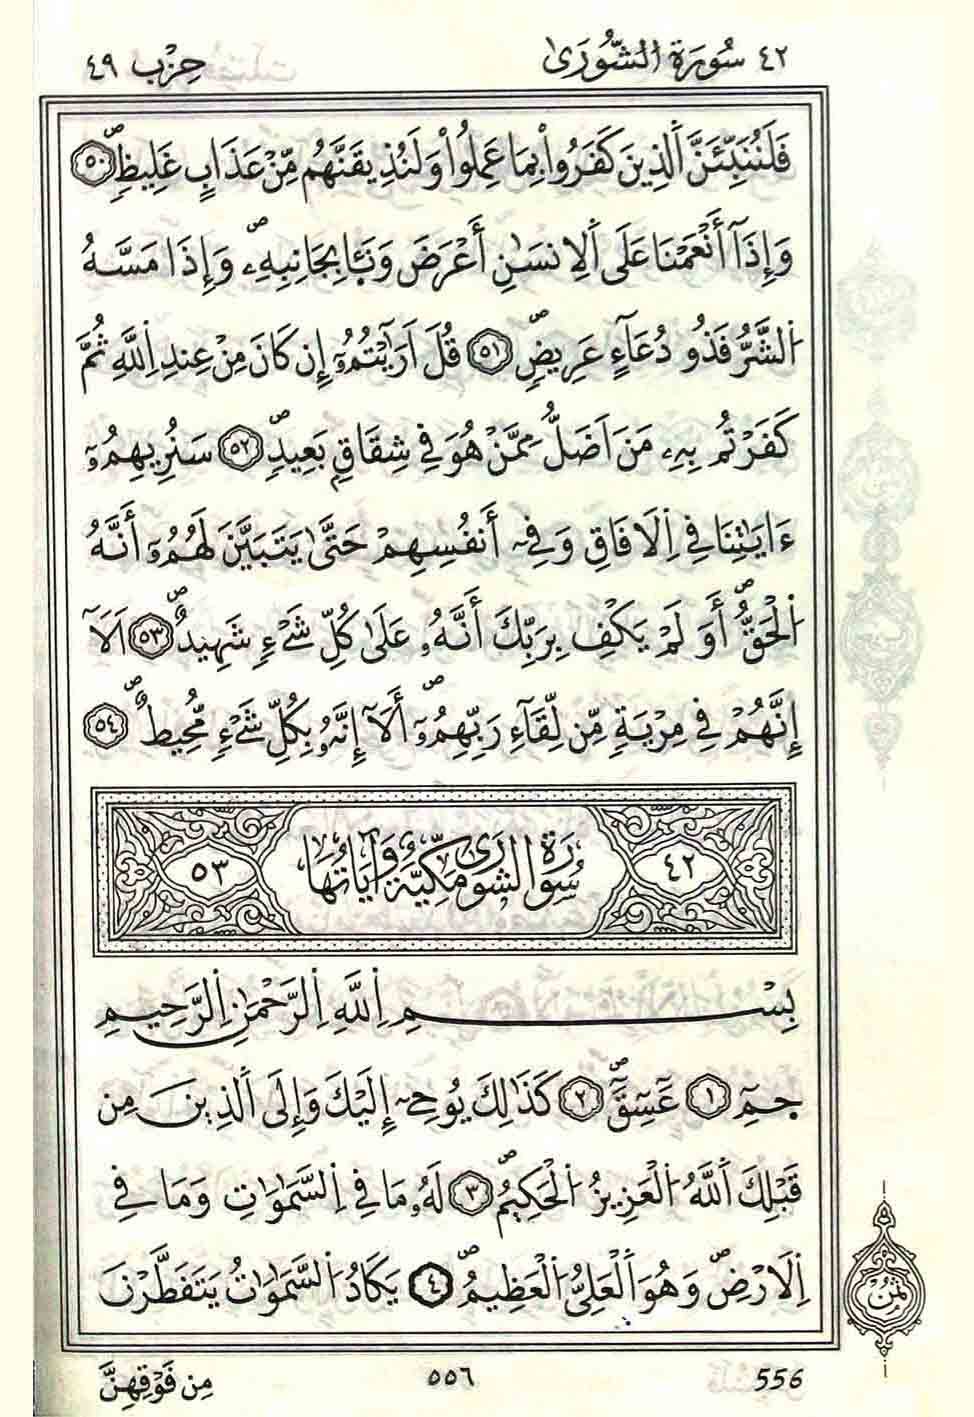 ٤٢ سُورَةُ الشُّورَىٰ حِزْب ٤٩
فَلَنُنَبِّئَنَّ اَ۬لذِينَ كَفَرُواْ بِمَا عَمِلُواْ وَلَنُذِيقَنَّهُم مِّنْ عَذَابٍ غَلِيظٖۖ ٥٠
وَإِذَآ أَنْعَمْنَا عَلَى اَ۬لِانسَٰنِ أَعْرَضَ وَنَـَٔا بِجَانِبِهِۦۖ وَإِذَا مَسَّهُ
اُ۬لشَّرُّ فَذُو دُعَآءٍ عَرِيضٖۖ ٥١ قُلَ اَرَٰٓيْتُمُۥٓ إِن كَانَ مِنْ عِندِ اِ۬للَّهِ ثُمَّ
كَفَرْتُم بِهِۦ مَنَ اَضَلُّ مِمَّنْ هُوَ فِے شِقَاقِۢ بَعِيدٖۖ ٥٢ سَنُرِيهِمُۥٓ
ءَايَٰتِنَا فِے اِ۬لَافَاقِ وَفِےٓ أَنفُسِهِمْ حَتَّىٰ يَتَبَيَّنَ لَهُمُۥٓ أَنَّهُ
اُ۬لْحَقُّۖ أَوَ لَمْ يَكْفِ بِرَبِّكَ أَنَّهُۥ عَلَىٰ كُلِّ شَےْءٖ شَهِيدٌۖ ٥٣ اَلَآ
إِنَّهُمْ فِے مِرْيَةٖ مِّن لِّقَآءِ رَبِّهِمُۥٓۖ أَلَآ إِنَّهُۥ بِكُلِّ شَےْءٖ مُّحِيطٌۖ ٥٤
٤٢ سُورَةُ الشُّورَىٰ مَكِّيَّةٌ وَآيَاتُهَا ٥٣
بِسْمِ اِ۬للَّهِ اِ۬لرَّحْمَٰنِ اِ۬لرَّحِيمِ
حٓمِٓ ١ عٓسِٓقَٓۖ ٢ كَذَٰلِكَ يُوحِےٓ إِلَيْكَ وَإِلَى اَ۬لذِينَ مِن
قَبْلِكَ اَ۬للَّهُ اُ۬لْعَزِيزُ اُ۬لْحَكِيمُۖ ٣ لَهُۥ مَا فِے اِ۬لسَّمَٰوَٰتِ وَمَا فِے
اِ۬لَارْضِۖ وَهُوَ اَ۬لْعَلِيُّ اُ۬لْعَظِيمُۖ ٤ يَكَادُ اُ۬لسَّمَٰوَٰتُ يَتَفَطَّرْنَ
ثُمُن
مِن فَوْقِهِنَّ ٥٥٦ 556